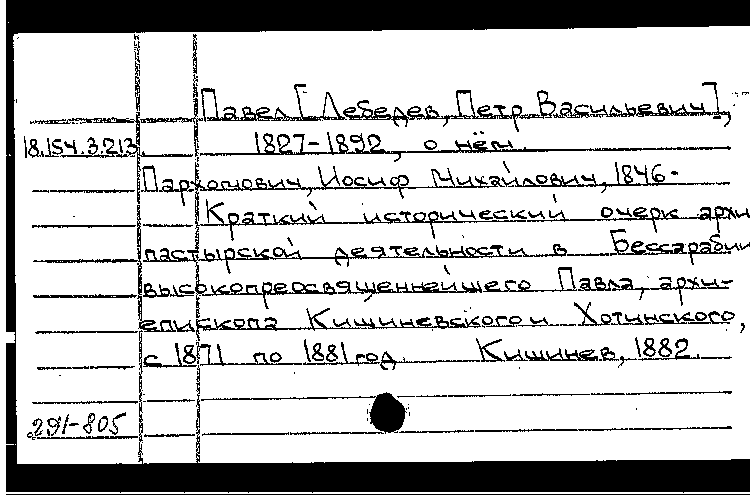 Павел [Лебедев, Петр Васильевич],
18.154.3.213. 1827-1892, о нём.
Пархомович, Иосиф Михайлович, 1846-
Краткий исторический очерк архи
пастырской деятельности в Бессарабии
высокопреосвященнейшего Павла, архи-
епископа Кишиневского и Хотинского,
с 1871 по 1881 год Кишинев, 1882.
291-805